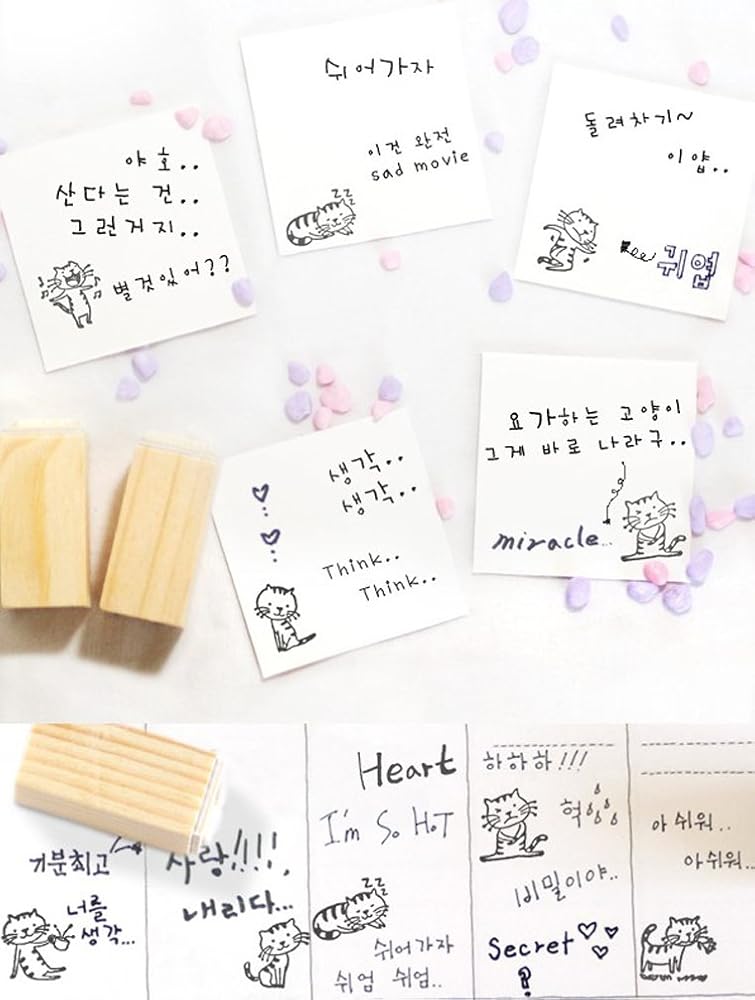 야호..
산다는 건..
그런거지..
별것있어??
쉬어가자
이건 완전
sad movie
zz
돌려차기~
이얍..
귀엽
생각..
생각..
Think..
Think..
요가하는 고양이
그게 바로 나라구..
miracle...
기분최고
너를
생각...
사랑!!!!.
내리다...
Heart
I'm So HoT
zz
쉬어가자
쉬엄 쉬엄..
하하하!!!
헉
비밀이야..
Secret
?
아 쉬워..
아쉬워..